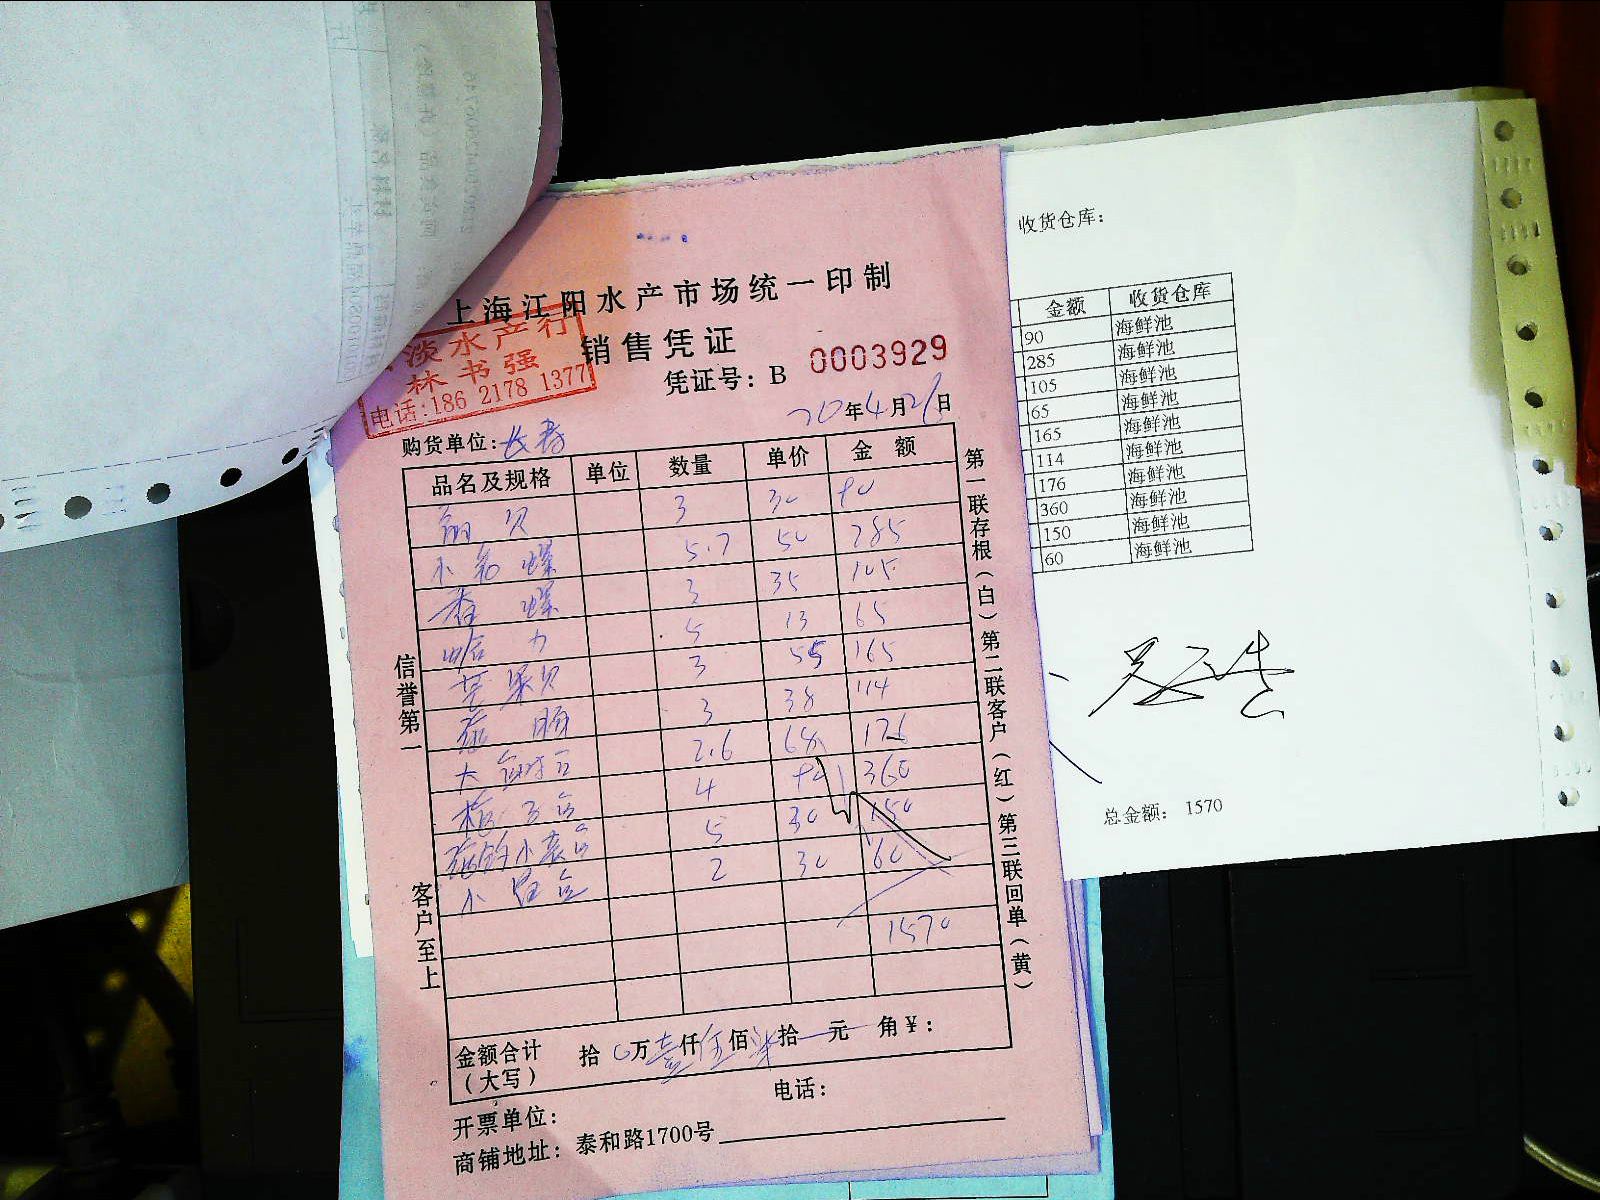 上海江阳水产市场统一印制
销售凭证
淡水产行
林书强
电话:186 2178 1377
凭证号: B 0003929
20年4月21日
购货单位:长寿
品名及规格 单位 数量 单价 金额
贝 3 30 90
小 螺 5.7 50 285
香螺 3 35 105
蛤 5 13 65
芒果贝 3 55 165
肠 3 38 114
大 2.6 68 176
4 90 360
小 5 30 150
小 2 30 60
1570
金额合计(大写) 拾0万壹仟伍佰柒拾 元 角¥:
电话:
开票单位:
商铺地址: 泰和路1700号
信誉第一
客户至上
第一联存根(白)第二联客户(红)第三联回单(黄)
收货仓库:
金额 收货仓库
90 海鲜池
285 海鲜池
105 海鲜池
65 海鲜池
165 海鲜池
114 海鲜池
176 海鲜池
360 海鲜池
150 海鲜池
60 海鲜池
总金额: 1570